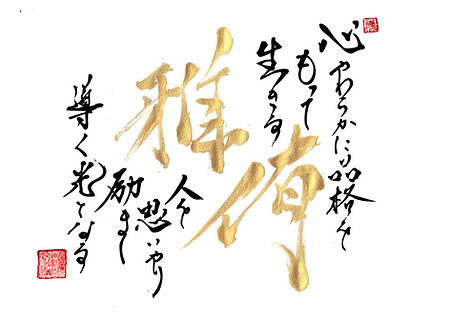 心やわらかに品格を
もって
生きる
雅侑
人を
思いやり
励まし
導く光となる